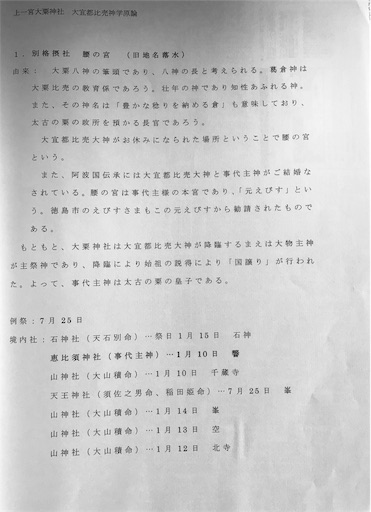 上一宮大粟神社　大宜都比売神学原論
１．別格摂社　腰の宮　（旧地名蕗水）
由来：　大粟八神の筆頭であり、八神の長と考えられる。葛倉神は
大粟比売の教育係であろう。壮年の神であり知性あふれる神。
また、その神名は「豊かな稔りを納める倉」も意味しており、
太古の粟の政所を預かる長官であろう。
大宜都比売大神がお休みになられた場所ということで腰の宮
という。
また、阿波国伝承には大宜都比売大神と事代主神がご結婚な
されている。腰の宮は事代主様の本宮であり、「元えびす」とい
う。徳島市のえびすさまもこの元えびすから勧請されたもので
ある。
もともと、大粟神社は大宜都比売大神が降臨するまえは大物主神
が主祭神であり、降臨により始祖の説得により「国譲り」が行われ
た。よって、事代主神は太古の粟の皇子である。
例祭：７月２５日
境内社：石神社（天石別命）…祭日１月１５日　石神
恵比須神社（事代主神）…１月１０日　響
山神社（大山積命）…１月１０日　千蔵寺
天王神社（須佐之男命、稲田姫命）…７月２５日　峯
山神社（大山積命）…１月１４日　峯
山神社（大山積命）…１月１３日　空
山神社（大山積命）…１月１２日　北寺